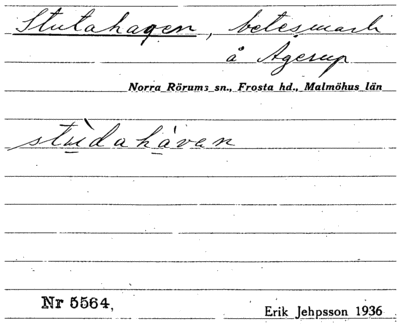 Stutahagen, betesmark
å Agerup
Norra Rörums sn., Frosta hd., Malmöhus län
stùdahàvan
Nr 5564,
Erik Jehpsson 1936